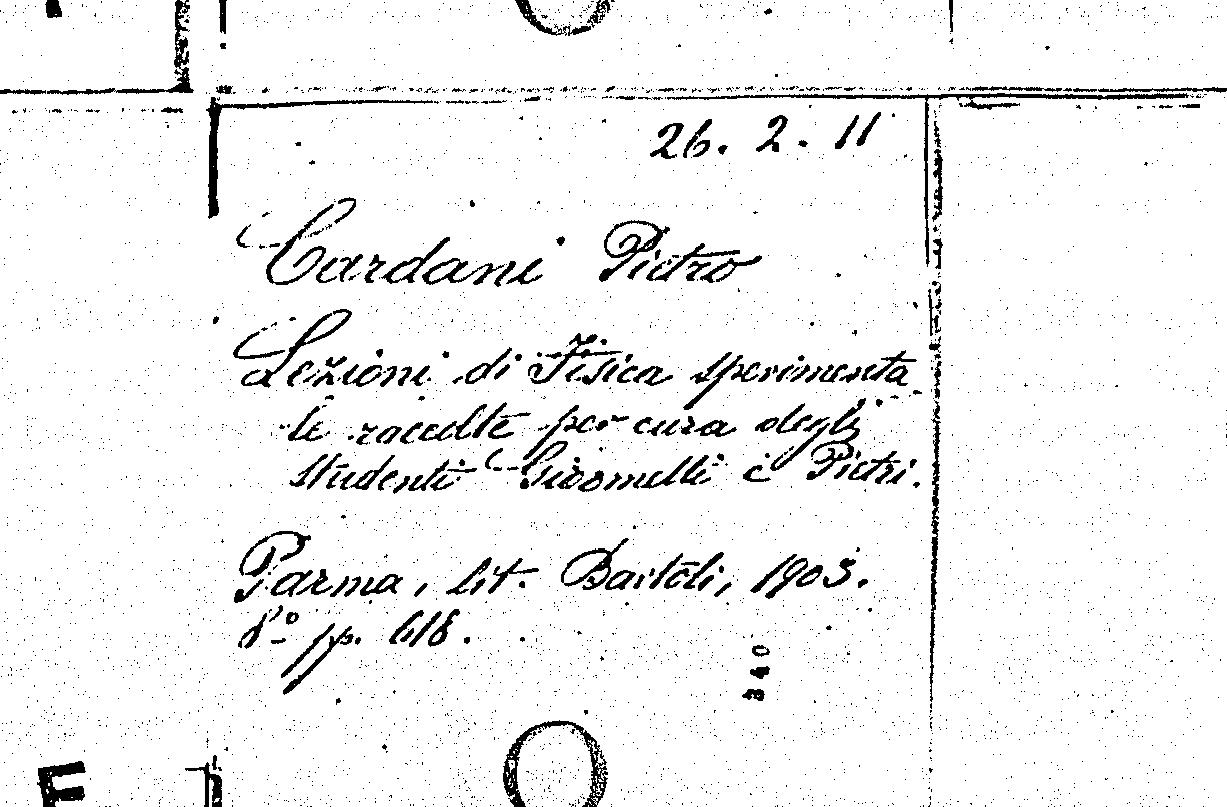 26. 2. 11
Cardani Pietro
Lezioni di Fisica sperimenta
le raccolte per cura degli
studenti Giromelli e Pietri.
Parma, lit. Bartoli, 1903.
8º pp. 618.
340
E